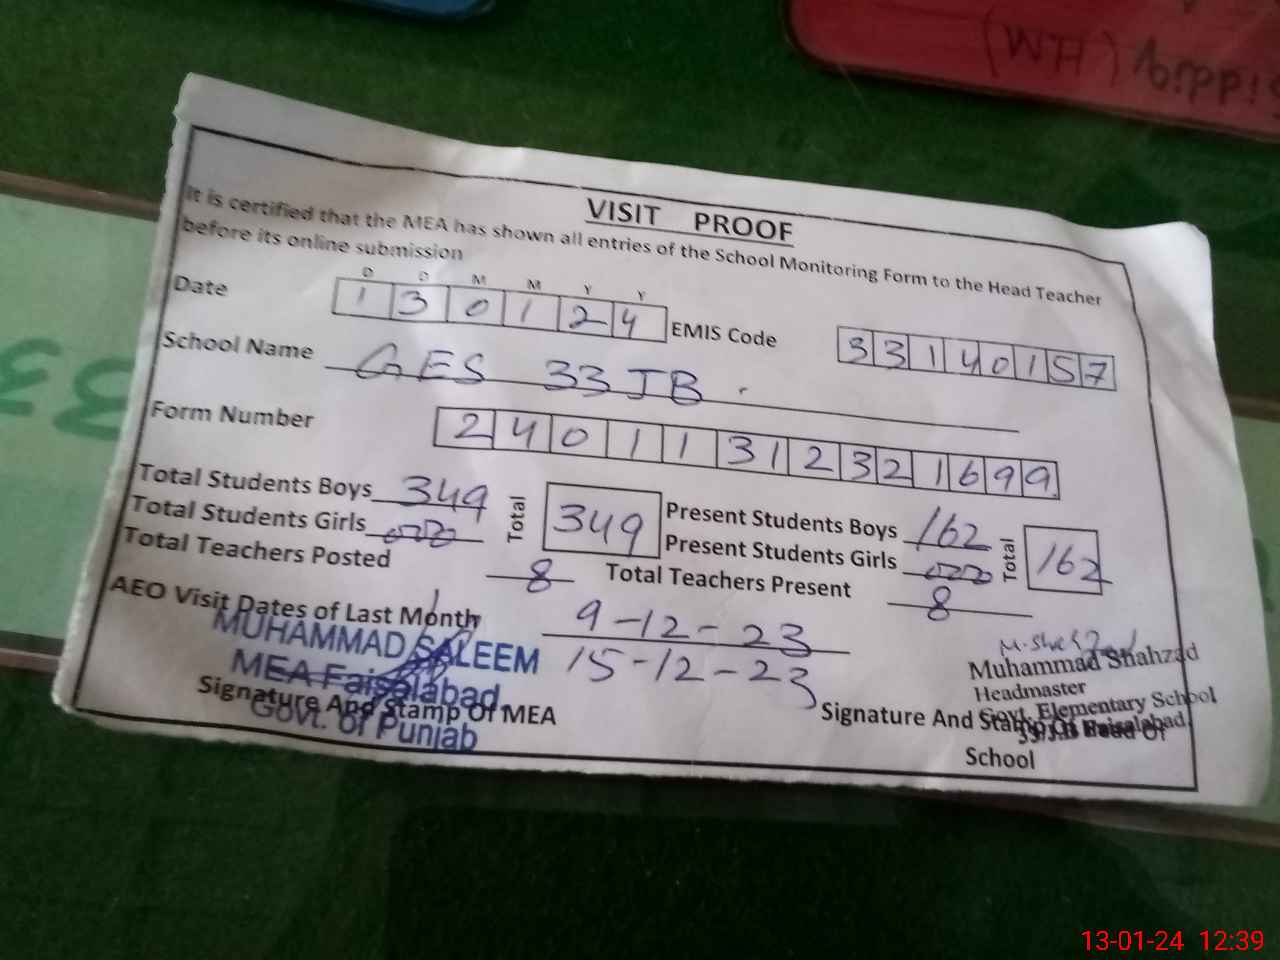 (WH)
VISIT PROOF
It is certified that the MEA has shown all entries of the School Monitoring Form to the Head Teacher
before its online submission
D D M M Y Y
Date 1 3 0 1 2 4 EMIS Code 3 3 1 4 0 1 5 7
School Name GES 33 JB
Form Number 2 4 0 1 1 3 1 2 3 2 1 6 9 9
Total Students Boys 349 Total 349 Present Students Boys 162 Total 162
Total Students Girls 000 Present Students Girls 000
Total Teachers Posted 8 Total Teachers Present 8
AEO Visit Dates of Last Month 9-12-23
15-12-23
MUHAMMAD SALEEM
MEA Faisalabad.
Govt. Of Punjab
Signature And Stamp Of MEA
Muhammad Shahzad
Headmaster
Govt. Elementary School
Faisalabad
Signature And Stamp Of Head Of
School
33
13-01-24 12:39